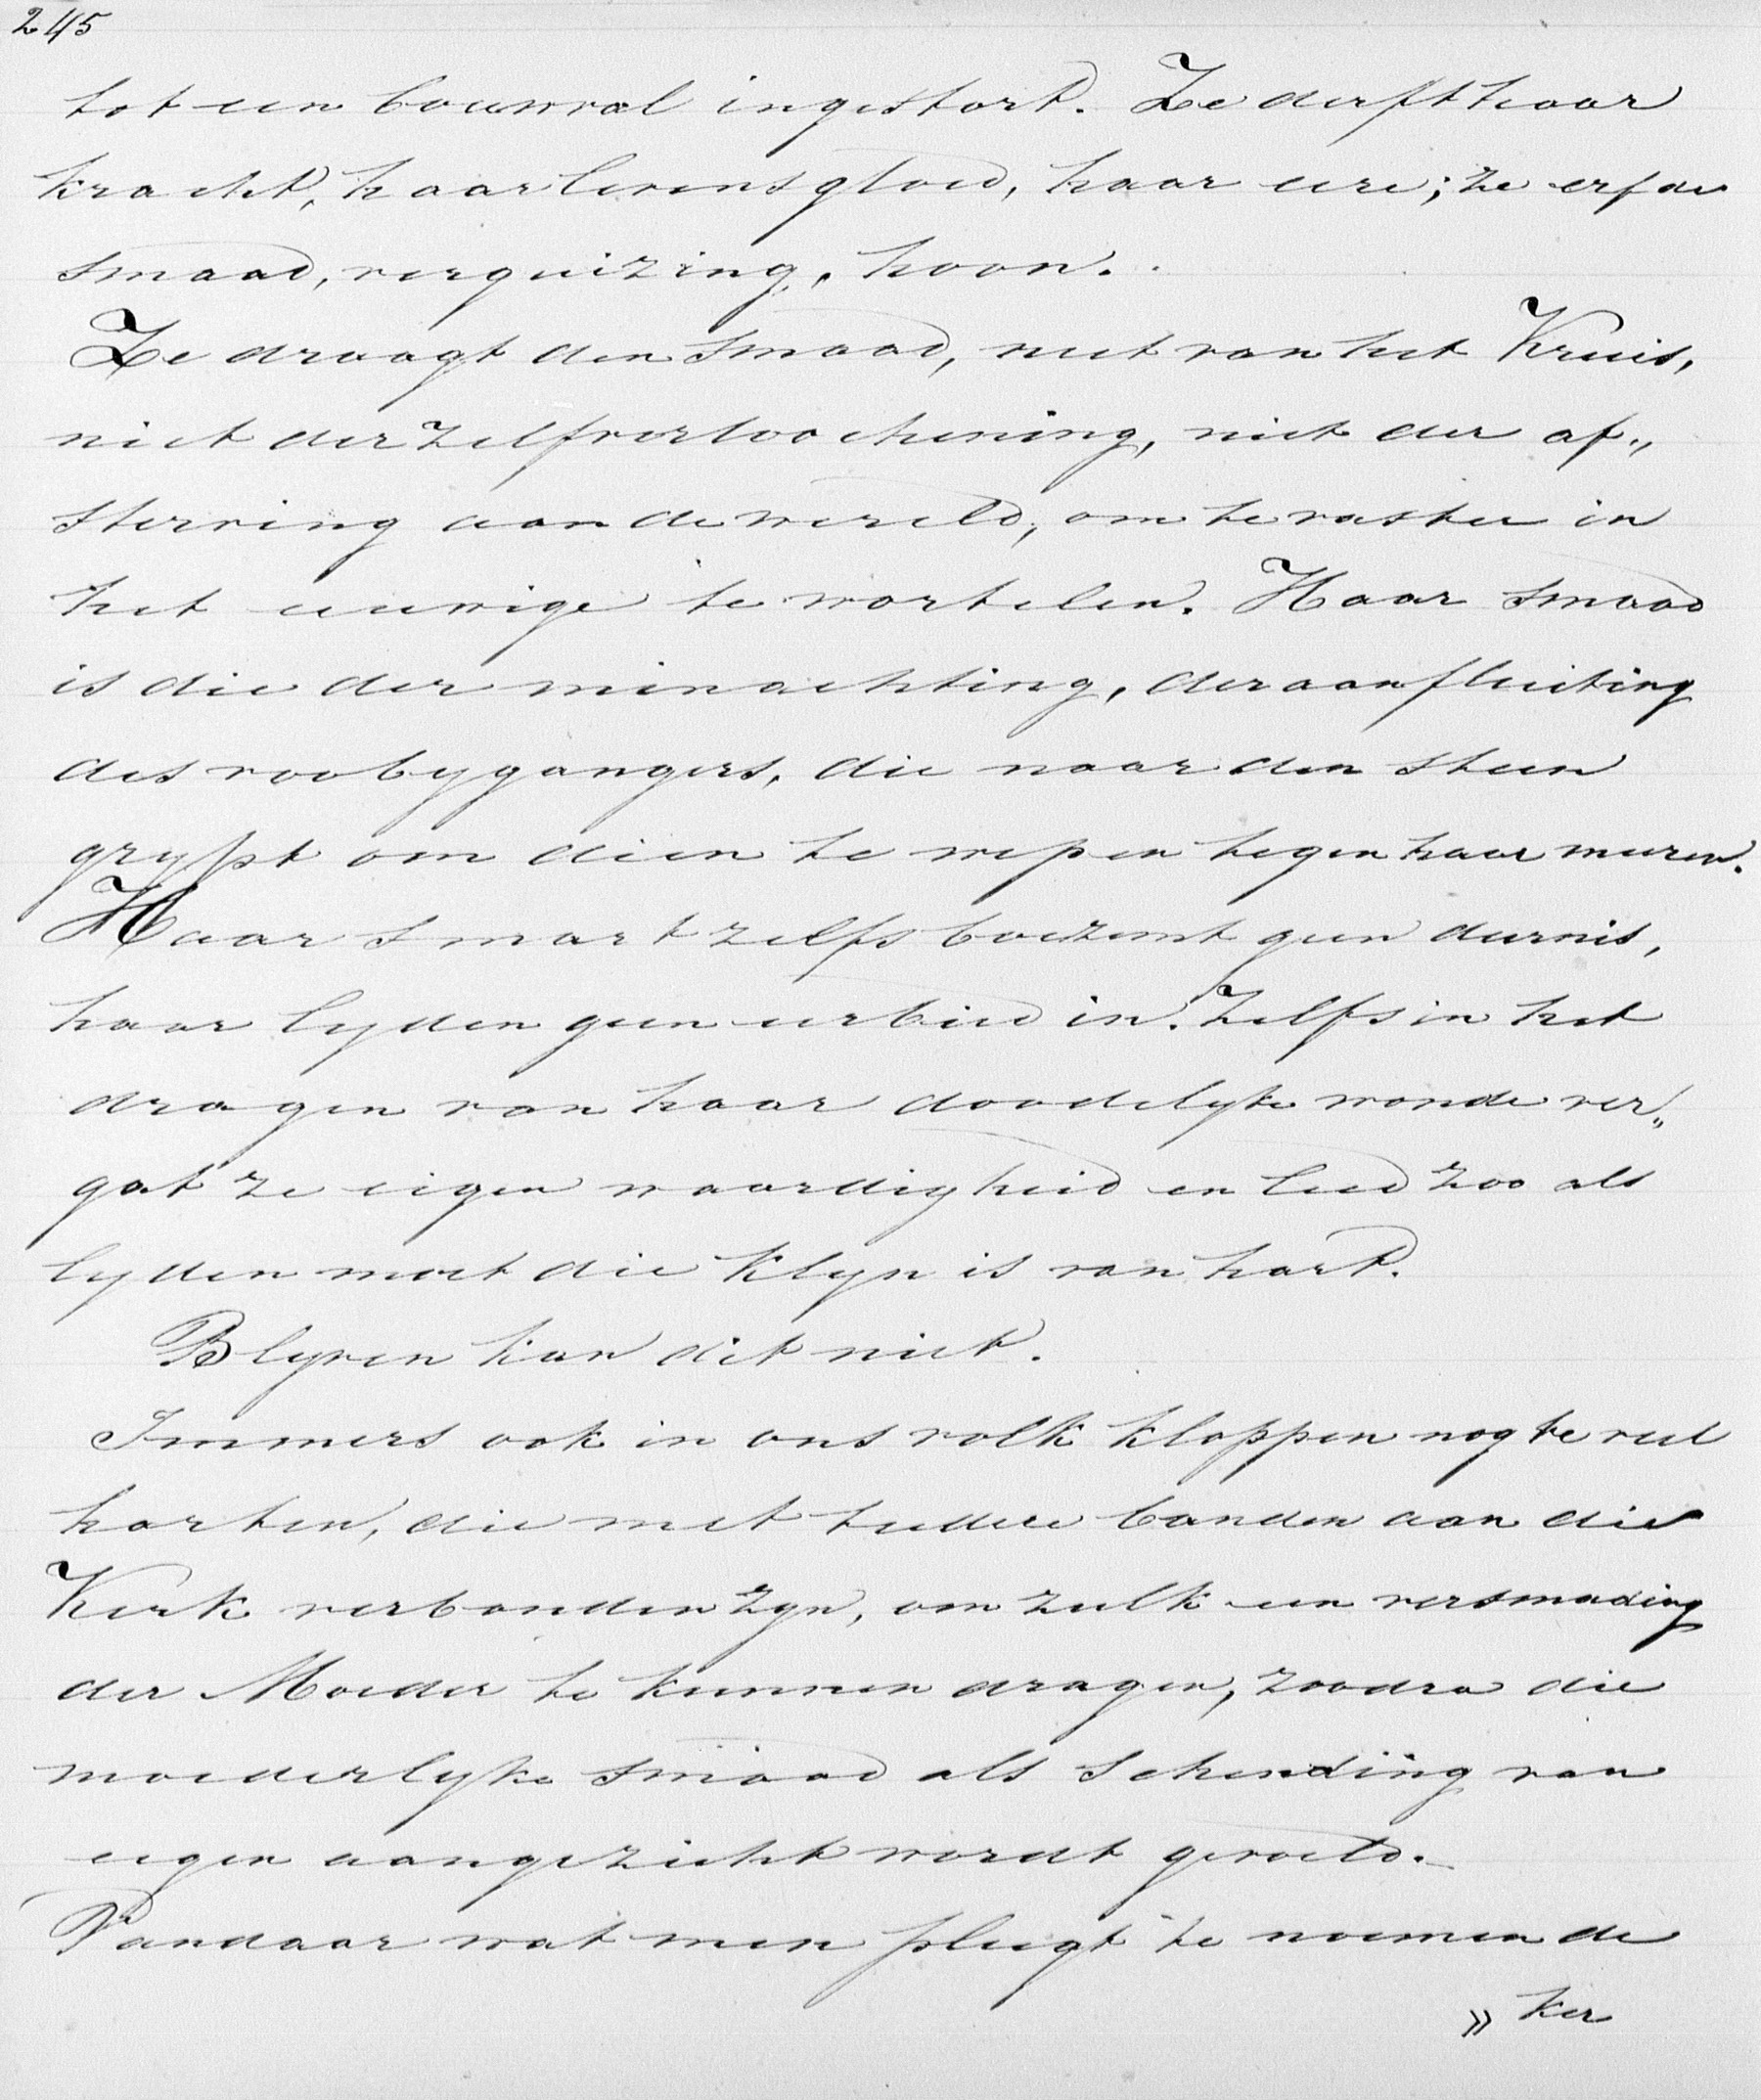 245
tot een bouwval ingestort. Ze derft haar
kracht, haar levensgloed, haar eere; ze erfde
smaad, verguizing, hoon.
Ze draagt den smaad, niet van het Kruis,
niet der zelfverloochening, niet der af„
sterving aan de wereld, om te vaster in
het eeuwige te wortelen. Haar smaad
is die der minachting, der aanfluiting
des voobygangers, die naar den steen
grypt om dien te werpen tegen haar muren.
Haar smart zelfs boezemt geen deernis,
haar lyden geen eerbied in. Zelfs in het
dragen van haar doodelyke wonde ver„
gat ze eigen waardigheid en leed zoo als
lyden moet die klyn is van hart.
Blyven kan dit niet.
Immers ook in ons volk kloppen nog te veel
harten, die met teedere banden aan die
Kerk verbonden zyn, om zulk een versmading
der Moeder te kunnen dragen, zoodra die
moederlyke smaad als schending van
eigen aangezicht wordt gevoeld.
Vandaar wat men pleegt te noemen de
„ Ker